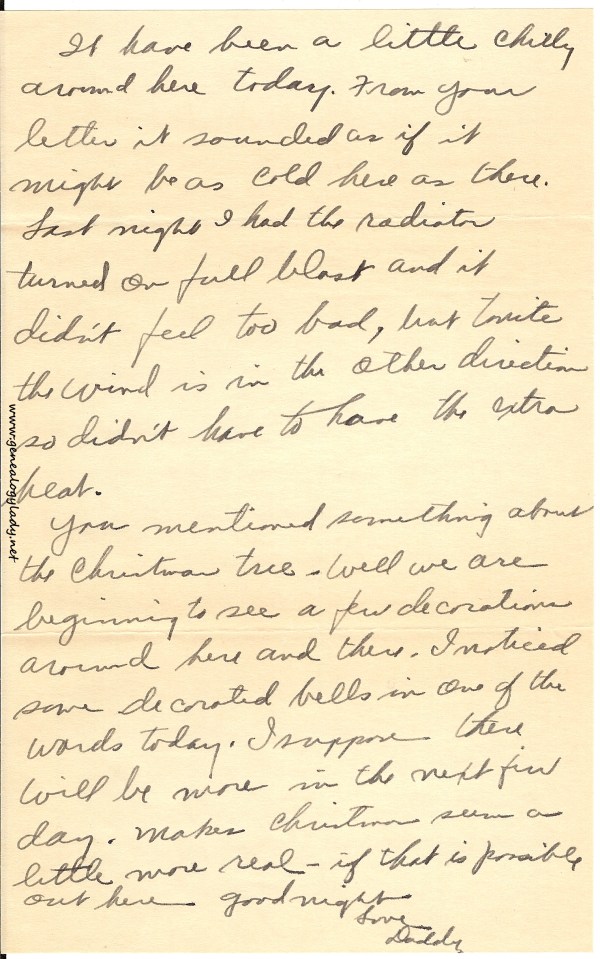 It have been a little chilly
around here today. From your
letter it sounded as if it
might be as cold here as there.
Last night I had the radiator
turned on full blast and it
didn't feel too bad, but tonite
the wind is in the other direction
so didn't have to have the extra
heat.
You mentioned something about
the Christmas tree - well we are
beginning to see a few decorations
around here and there. I noticed
some decorated bells in one of the
wards today. I suppose there
will be more in the next few
day. Makes Christmas seem a
little more real - if that is possible
out here goodnight
Love
Daddy
www.genealogylady.net